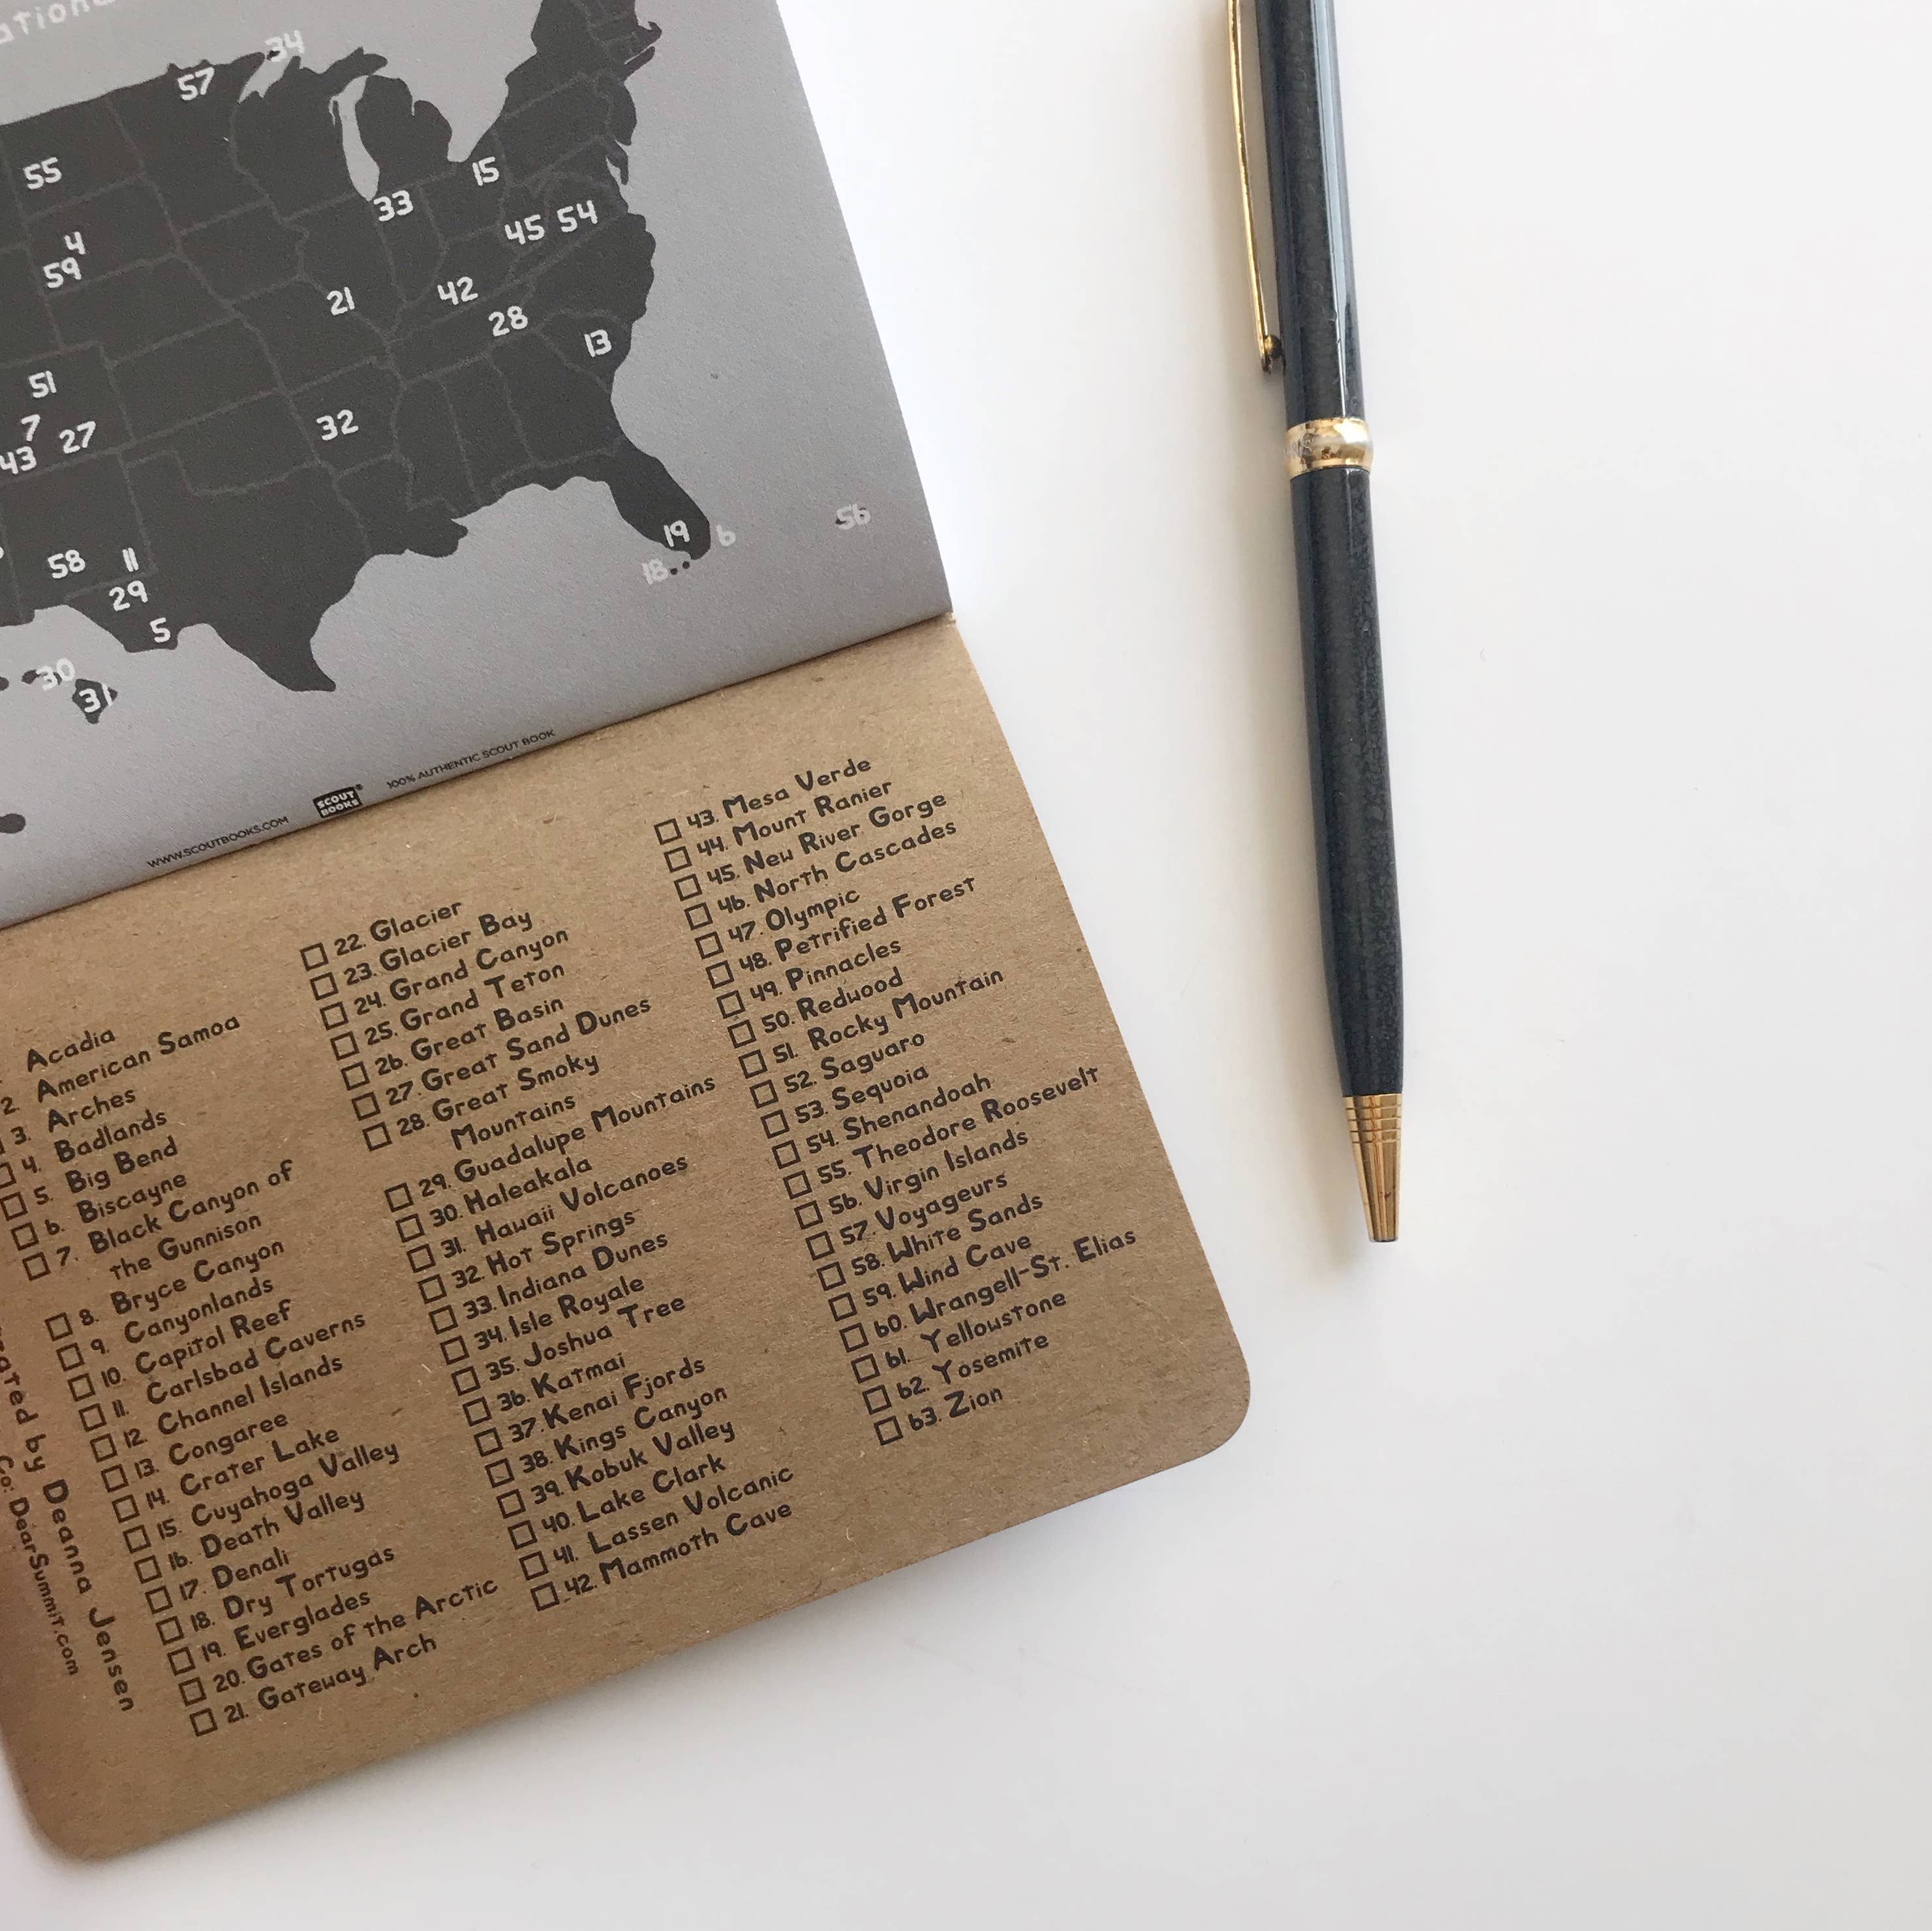 57
34
55
15
33
4
45 54
59
21
42
28
13
51
7
43 27
32
19 6
56
18
58 11
29
5
30
31
WWW.SCOUTBOOKS.COM
SCOUT
BOOKS
100% AUTHENTIC SCOUT BOOK
Acadia
2. American Samoa
3. Arches
4. Badlands
5. Big Bend
6. Biscayne
7. Black Canyon of
the Gunnison
8. Bryce Canyon
9. Canyonlands
10. Capitol Reef
11. Carlsbad Caverns
12. Channel Islands
13. Congaree
14. Crater Lake
15. Cuyahoga Valley
16. Death Valley
17. Denali
18. Dry Tortugas
19. Everglades
20. Gates of the Arctic
21. Gateway Arch
22. Glacier
23. Glacier Bay
24. Grand Canyon
25. Grand Teton
26. Great Basin
27. Great Sand Dunes
28. Great Smoky
Mountains
29. Guadalupe Mountains
30. Haleakala
31. Hawaii Volcanoes
32. Hot Springs
33. Indiana Dunes
34. Isle Royale
35. Joshua Tree
36. Katmai
37. Kenai Fjords
38. Kings Canyon
39. Kobuk Valley
40. Lake Clark
41. Lassen Volcanic
42. Mammoth Cave
43. Mesa Verde
44. Mount Ranier
45. New River Gorge
46. North Cascades
47. Olympic
48. Petrified Forest
49. Pinnacles
50. Redwood
51. Rocky Mountain
52. Saguaro
53. Sequoia
54. Shenandoah
55. Theodore Roosevelt
56. Virgin Islands
57. Voyageurs
58. White Sands
59. Wind Cave
60. Wrangell-St. Elias
61. Yellowstone
62. Yosemite
63. Zion
by Deanna Jensen
Co: DearSummit.com